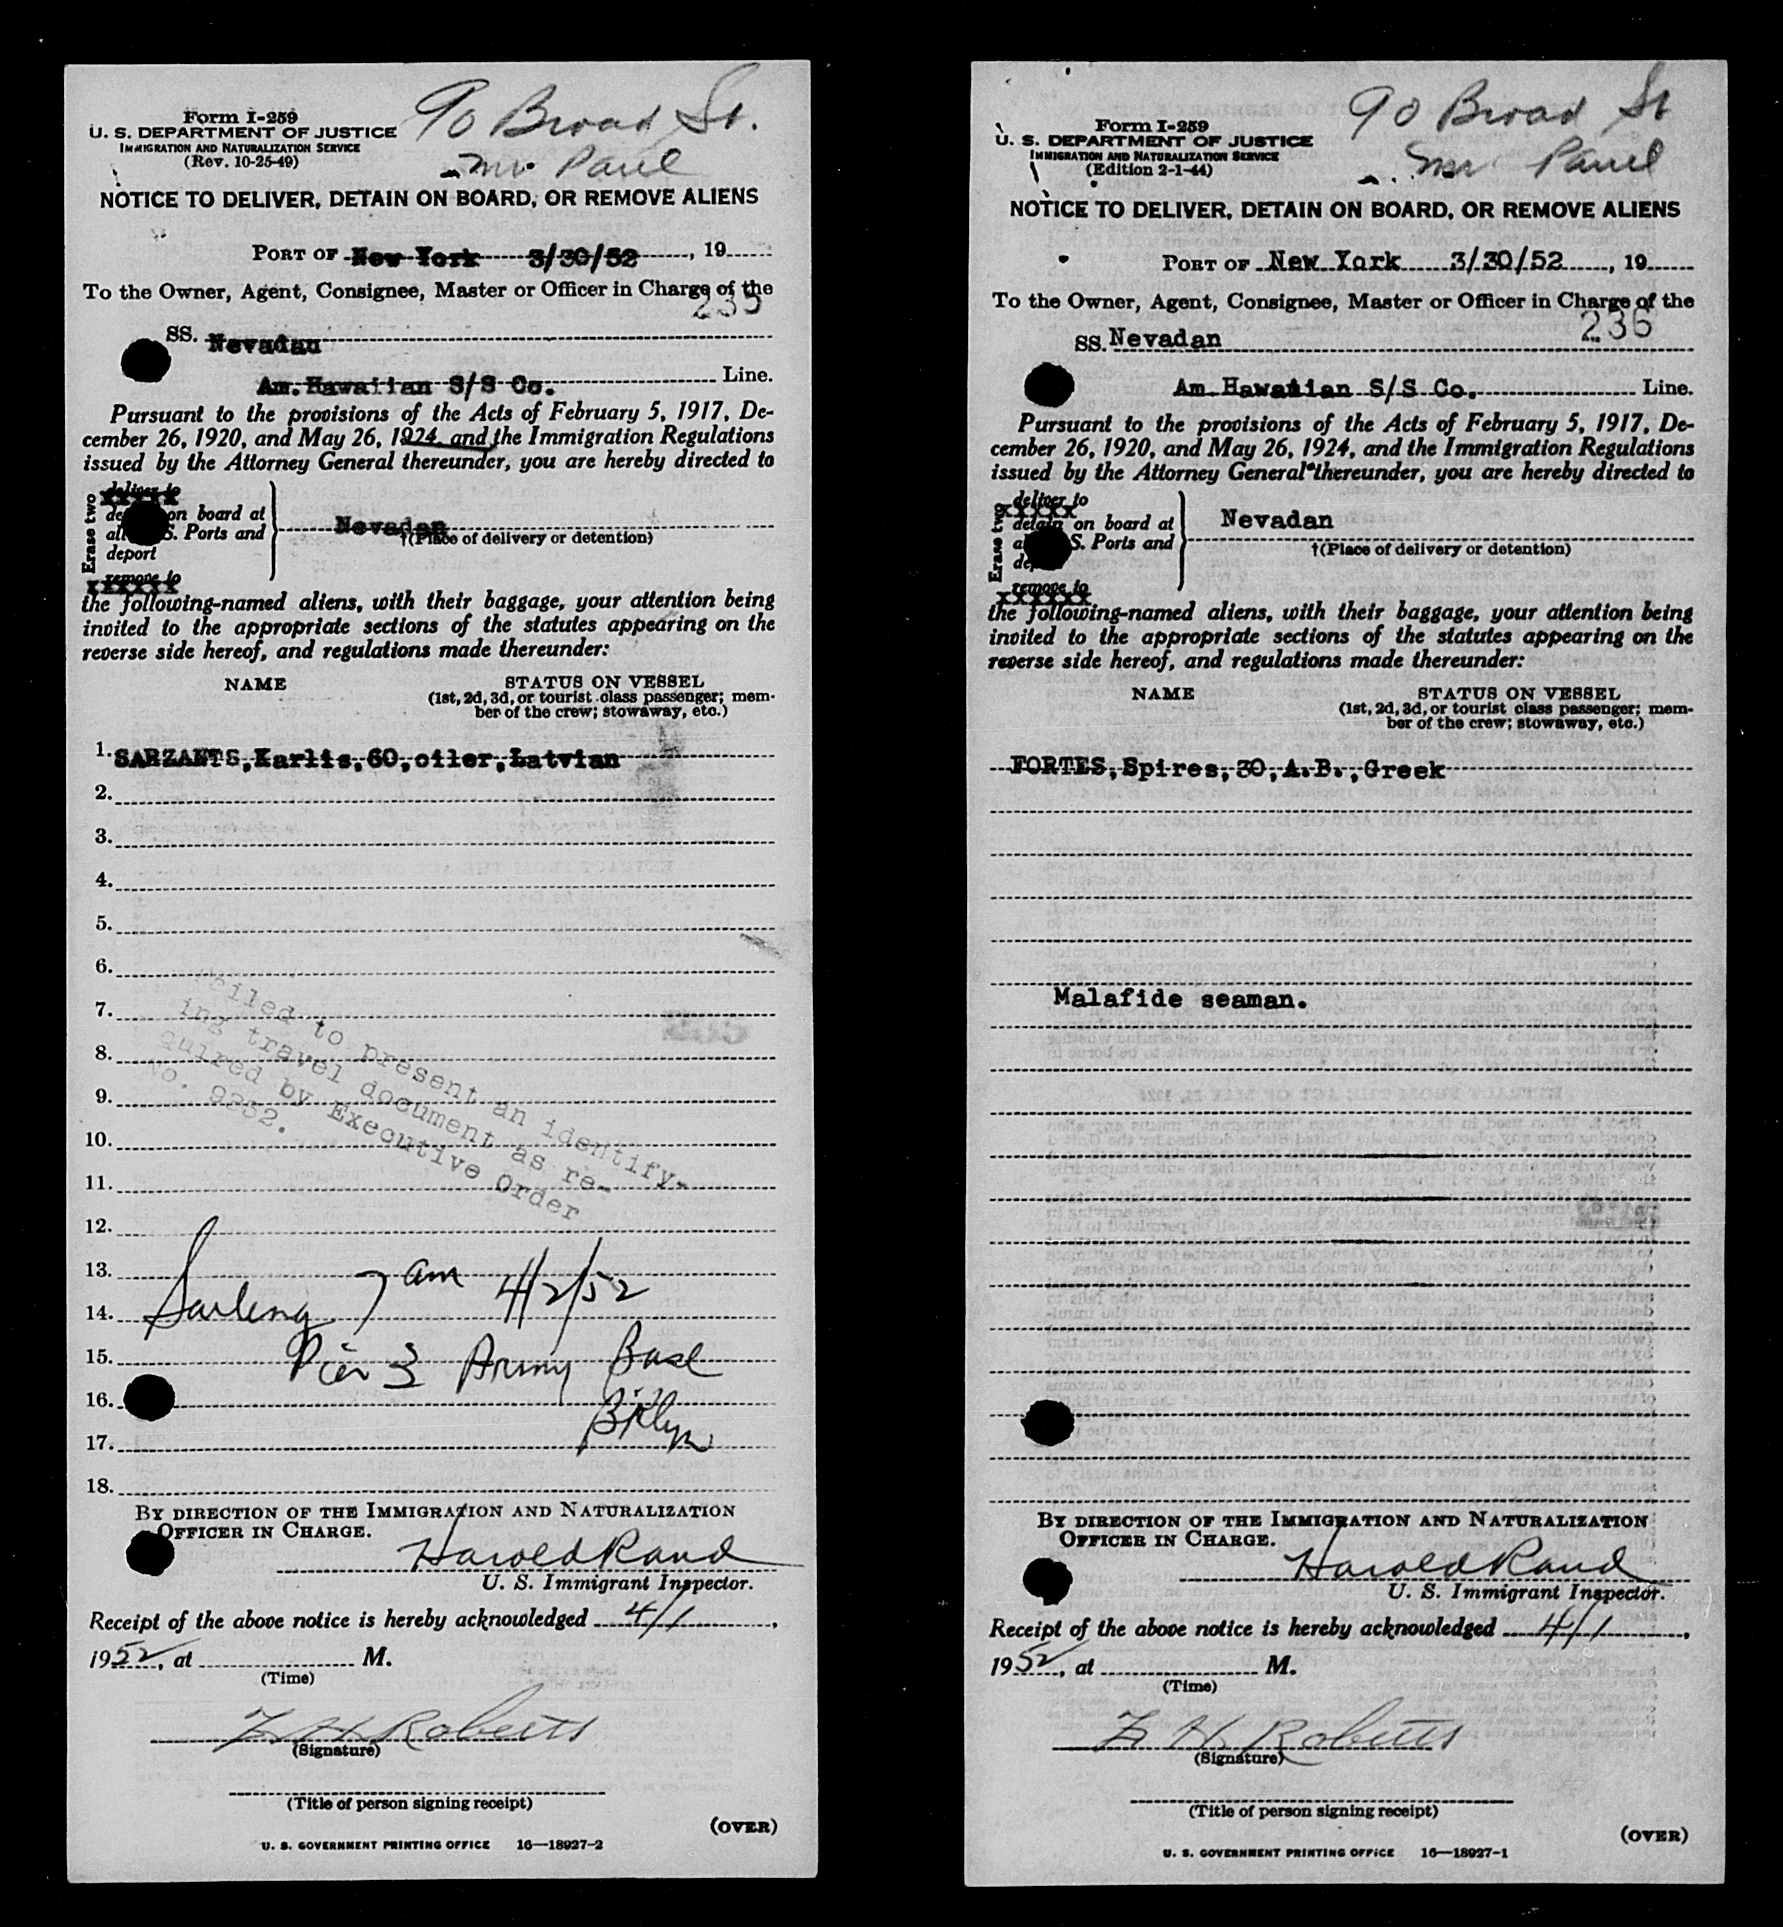 Form I-259
U. S. DEPARTMENT OF JUSTICE
IMMIGRATION AND NATURALIZATION SERVICE
(Rev. 10-25-49)
90 Broad St.
Mr. Paul
NOTICE TO DELIVER, DETAIN ON BOARD, OR REMOVE ALIENS
PORT OF New York 3/30/52, 19
To the Owner, Agent, Consignee, Master or Officer in Charge of the
235
SS. Nevadan
Am. Hawaiian S/S Co. Line.
Pursuant to the provisions of the Acts of February 5, 1917, De-
cember 26, 1920, and May 26, 1924, and the Immigration Regulations
issued by the Attorney General thereunder, you are hereby directed to
Erase two
deliver to
on board at
S. Ports and
deport
remove to
Nevadan
†(Place of delivery or detention)
the following-named aliens, with their baggage, your attention being
invited to the appropriate sections of the statutes appearing on the
reverse side hereof, and regulations made thereunder:
NAME
STATUS ON VESSEL
(1st, 2d, 3d, or tourist class passenger; mem-
ber of the crew; stowaway, etc.)
1. SARZANTS, Karlis, 60, oiler, Latvian
2.
3.
4.
5.
6.
7.
8.
9.
10.
11.
12.
13.
14.
15.
16.
17.
18.
Failed to present an identify-
ing travel document as re-
quired by Executive Order
No. 9352.
Sailing 7 am 4/2/52
Pier 3 Army Base
Bklyn
BY DIRECTION OF THE IMMIGRATION AND NATURALIZATION
OFFICER IN CHARGE.
Harold Rand
U. S. Immigrant Inspector.
Receipt of the above notice is hereby acknowledged 4/1,
1952, at M.
(Time)
H Roberts
(Signature)
(Title of person signing receipt)
(OVER)
U. S. GOVERNMENT PRINTING OFFICE 16—18927-2
Form I-259
U. S. DEPARTMENT OF JUSTICE
IMMIGRATION AND NATURALIZATION SERVICE
(Edition 2-1-44)
90 Broad St
Mr Paul
NOTICE TO DELIVER, DETAIN ON BOARD, OR REMOVE ALIENS
PORT OF New York 3/30/52, 19
To the Owner, Agent, Consignee, Master or Officer in Charge of the
236
SS. Nevadan
Am. Hawaiian S/S Co. Line.
Pursuant to the provisions of the Acts of February 5, 1917, De-
cember 26, 1920, and May 26, 1924, and the Immigration Regulations
issued by the Attorney General thereunder, you are hereby directed to
Erase two
deliver to
detain on board at
S. Ports and
remove to
Nevadan
†(Place of delivery or detention)
the following-named aliens, with their baggage, your attention being
invited to the appropriate sections of the statutes appearing on the
reverse side hereof, and regulations made thereunder:
NAME
STATUS ON VESSEL
(1st, 2d, 3d, or tourist class passenger; mem-
ber of the crew; stowaway, etc.)
FORTES, Spires, 30, A.B., Greek
Malafide seaman.
BY DIRECTION OF THE IMMIGRATION AND NATURALIZATION
OFFICER IN CHARGE.
Harold Rand
U. S. Immigrant Inspector.
Receipt of the above notice is hereby acknowledged 4/1,
1952, at M.
(Time)
H Roberts
(Signature)
(Title of person signing receipt)
(OVER)
U. S. GOVERNMENT PRINTING OFFICE 16—18927-1